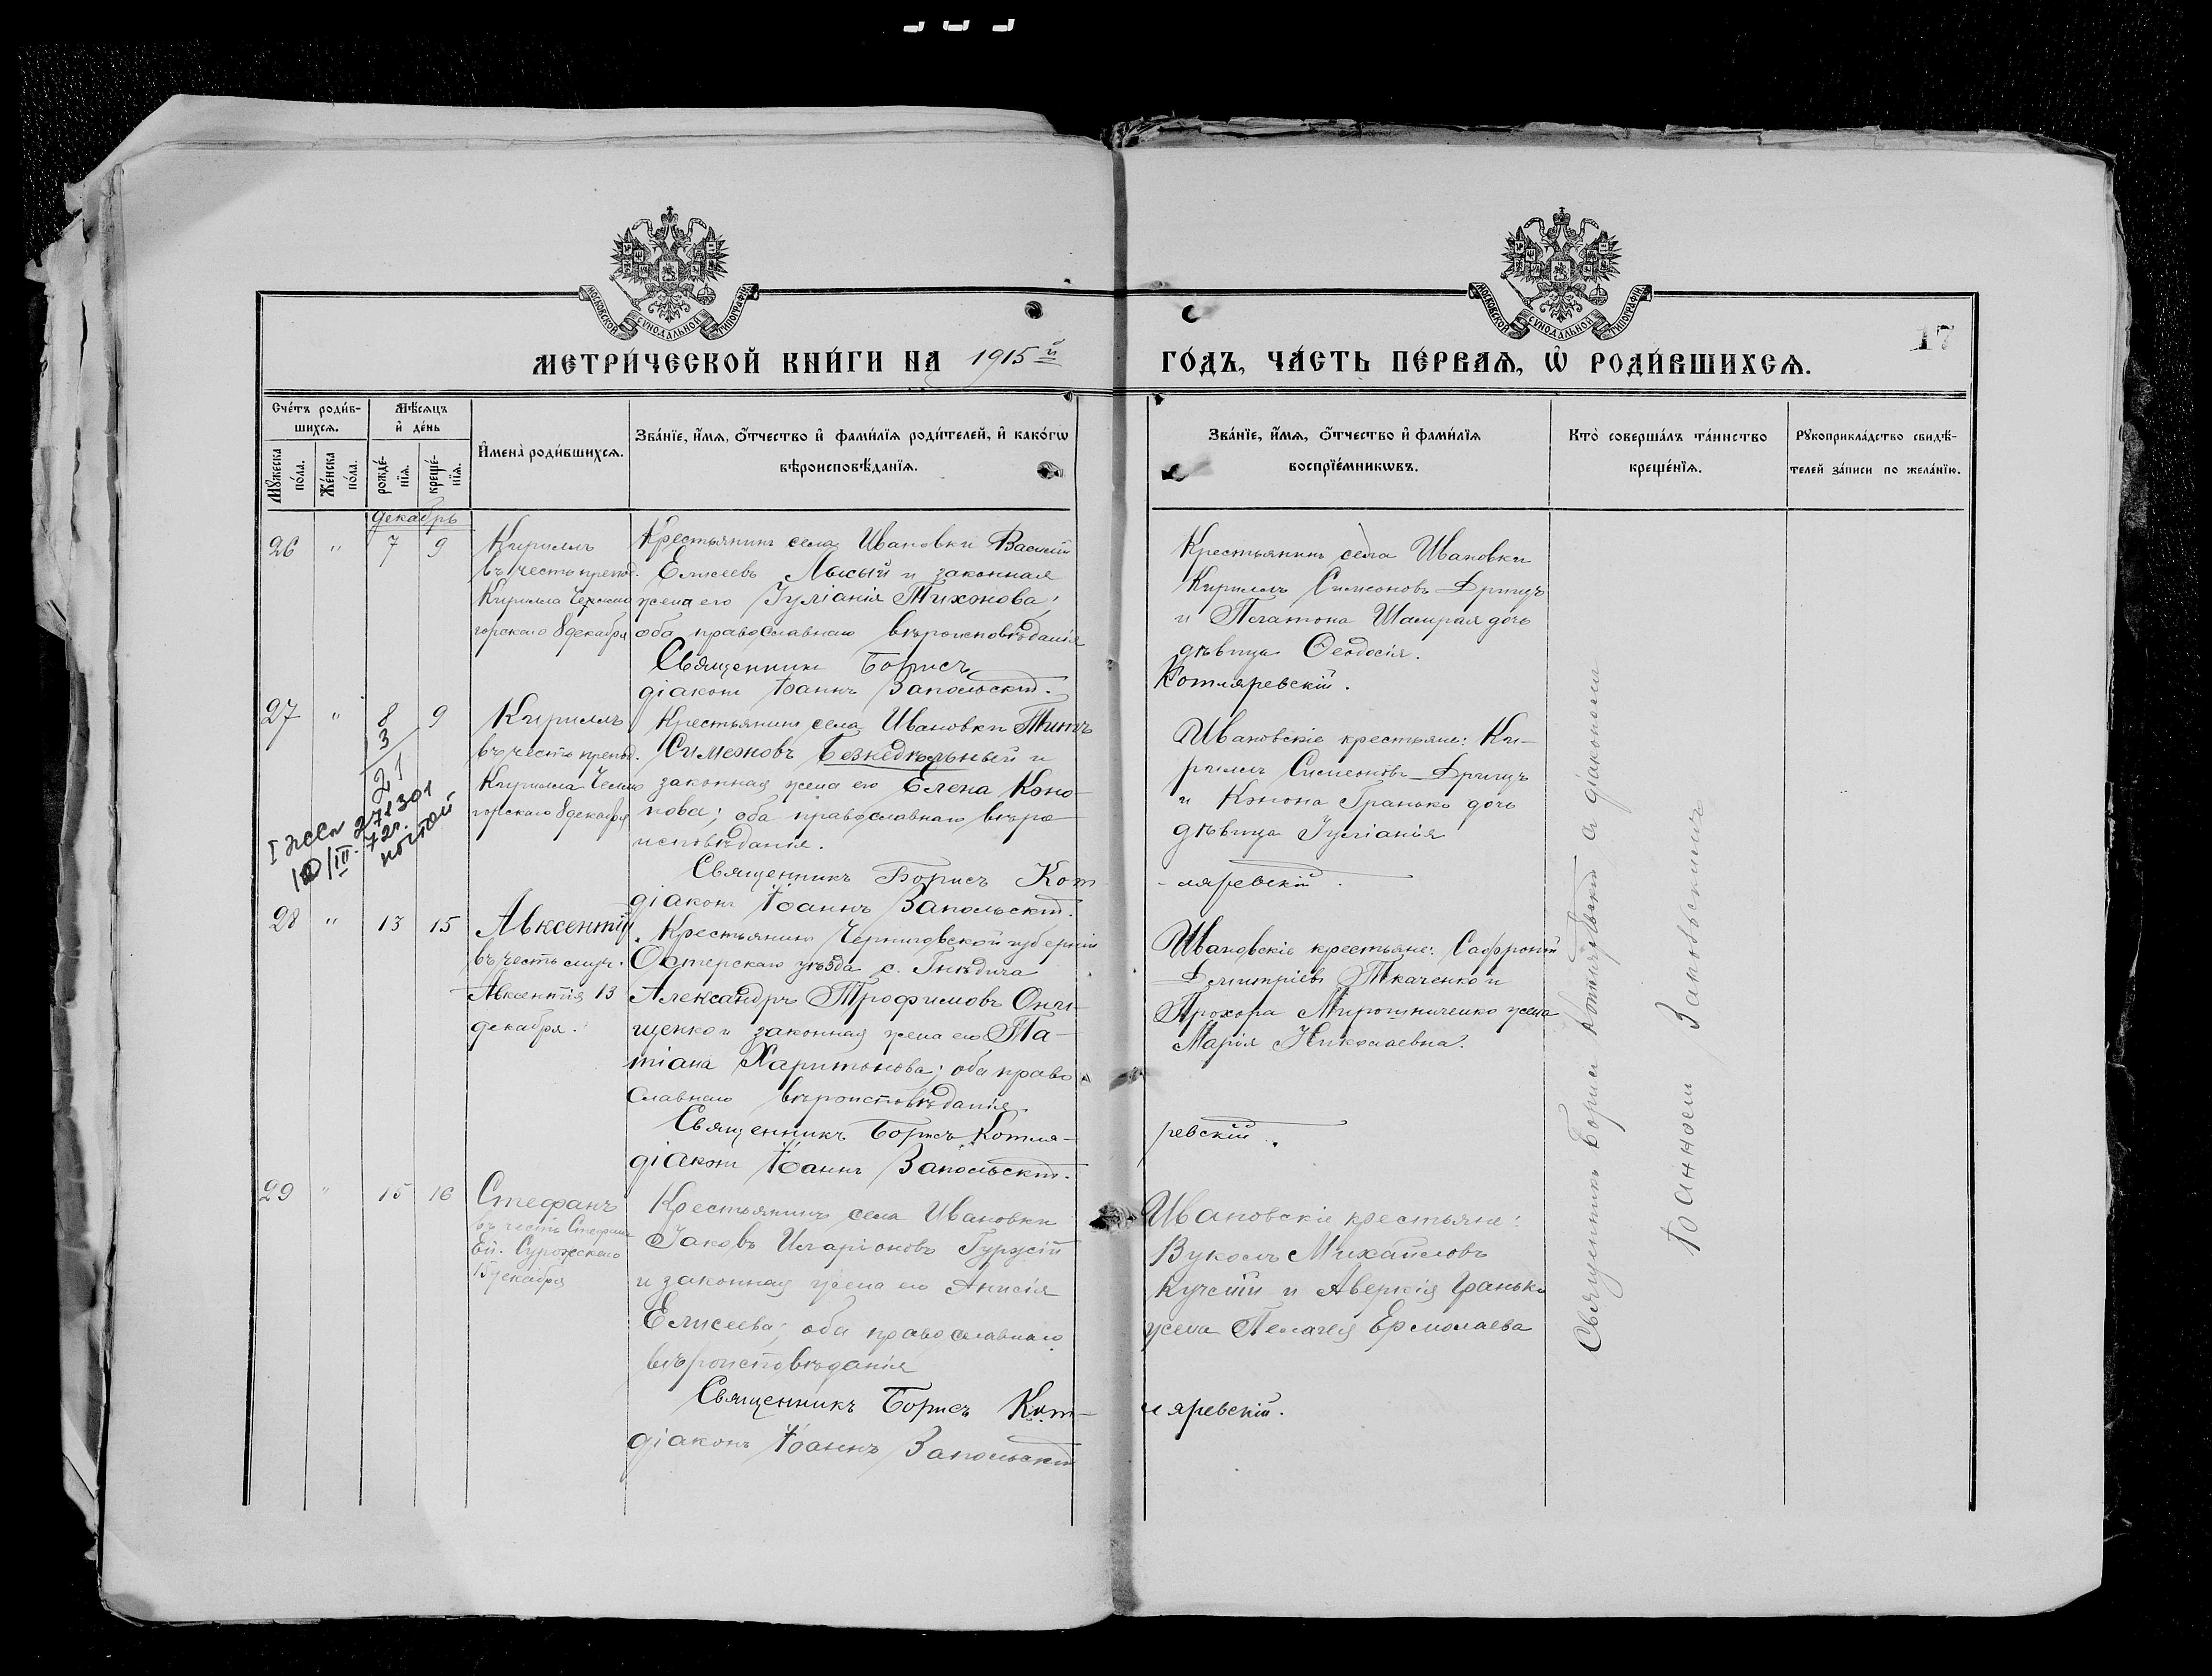 МОСКОВСКОЙ СѴНОДАЛЬНОЙ ТИПОГРАФІИ
МОСКОВСКОЙ СѴНОДАЛЬНОЙ ТИПОГРАФІИ
17
МЕТРИ́ЧЕСКОЙ КНИ́ГИ НА 1915й ГО́ДЪ, ЧА́СТЬ ПЕ́РВАѦ, Ѡ РОДИ́ВШИХСѦ.
Сче́тъ роди́в-
шихсѧ.
Мꙋ́жеска по́ла.
Же́нска по́ла.
Мѣ́сѧцъ
и҆ де́нь
рожде́-нїѧ.
креще́-нїѧ.
И҆мена̀ роди́вшихсѧ.
Зва́нїе, и҆́мѧ, ѻ҆́тчество и҆ фами́лїѧ роди́телей, и҆ како́гѡ
вѣроисповѣ́данїѧ.
Зва́нїе, и҆́мѧ, ѻ҆́тчество и҆ фами́лїѧ
воспрїе́мникѡвъ.
Кто̀ соверша́лъ та́инство
креще́нїѧ.
Рꙋкоприкла́дство свидѣ́-
телей за́писи по жела́нїю.
декабрь
26 " 7 9
Кириллъ
въ честь препод.
Кирилла Челмо
горскаго 8 декабря
Крестьянинъ села Ивановки Василій
Елисеевъ Лысый и законная
жена его Іуліанія Тихонова;
оба православнаго вѣроисповѣданія
Священникъ Борисъ
діаконъ Іоаннъ Запольскій.
Крестьянинъ села Ивановки
Кириллъ Симеоновъ Дрицъ
и Платона Шамрая дочь
дѣвица Ѳеодосія.
Котляревскій.
27 " 8 9
3
21
Кириллъ
въ честь препод.
Кирилла Челмо
горскаго 8 декабря
Крестьянинъ села Ивановки Титъ
Симеоновъ Безкедѣльный и
законная жена его Елена Коно-
нова; оба православнаго вѣро
исповѣданія.
Священникъ Борисъ Кот
діаконъ Іоаннъ Запольскій.
Ивановскіе крестьяне: Ки-
риллъ Симеоновъ Дрицъ
и Конона Гранько дочь
дѣвица Іуліанія
-ляревскій.
271301
72г.
28 " 13 15
Авксентій
въ честь муч.
Авксентія 13
декабря.
Крестьянинъ Черниговской губерніи
Остерскаго уѣзда с. Гнѣдича
Александръ Трофимовъ Они-
щенко и законная жена его Та-
тіана Харитонова; оба право
славнаго вѣроисповѣданія.
Священникъ Борисъ Котля-
діаконъ Іоаннъ Запольскій.
Ивановскіе крестьяне: Сафроній
Димитріевъ Ткаченко и
Прохора Мирошниченко жена
Марія Николаевна.
ревскій.
29 " 15 16
Стефанъ
въ честь Стефана
Еп. Сурожскаго
15 декабря
Крестьянинъ села Ивановки
Іаковъ Иларіоновъ Гуржій
и законная жена его Анисія
Елисеева; оба православнаго
вѣроисповѣданія
Священникъ Борисъ Кот-
діаконъ Іоаннъ Запольскій
Ивановскіе крестьяне:
Вуколъ Михайловъ
и Аверкія Гранько
жена Пелагея Ермолаева
ляревскій.
Священникъ Борисъ Котляревскій съ діакономъ
Іоанномъ Запольскимъ